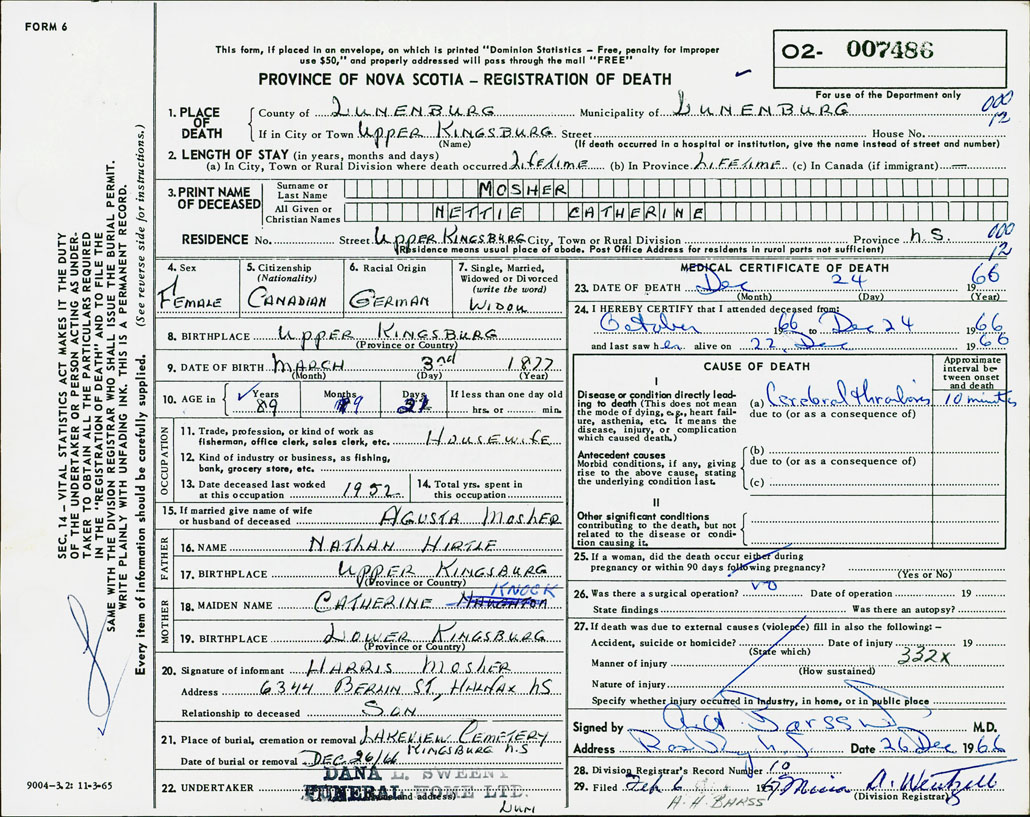 FORM 6
This form, if placed in an envelope, on which is printed "Dominion Statistics – Free, penalty for improper
use $50," and properly addressed will pass through the mail "FREE"
02- 007486
PROVINCE OF NOVA SCOTIA – REGISTRATION OF DEATH
For use of the Department only
1. PLACE OF DEATH
County of LUNENBURG Municipality of LUNENBURG 000 12
If in City or Town UPPER KINGSBURG Street House No.
(Name) (If death occurred in a hospital or institution, give the name instead of street and number)
2. LENGTH OF STAY (in years, months and days)
(a) In City, Town or Rural Division where death occurred LIFETIME (b) In Province LIFETIME (c) In Canada (if immigrant) —
3. PRINT NAME OF DECEASED
Surname or Last Name MOSHER
All Given or Christian Names NETTIE CATHERINE
RESIDENCE No. Street UPPER KINGSBURG City, Town or Rural Division Province N.S. 000 12
(Residence means usual place of abode. Post Office Address for residents in rural parts not sufficient)
4. Sex FEMALE
5. Citizenship (Nationality) CANADIAN
6. Racial Origin GERMAN
7. Single, Married, Widowed or Divorced (write the word) WIDOW
8. BIRTHPLACE UPPER KINGSBURG
(Province or Country)
9. DATE OF BIRTH MARCH 3rd 1877
(Month) (Day) (Year)
10. AGE in Years 89 Months 9 Days 21 If less than one day old
hrs. or min.
OCCUPATION
11. Trade, profession or kind of work as
fisherman, office clerk, sales clerk, etc. HOUSEWIFE
12. Kind of industry or business, as fishing,
bank, grocery store, etc.
13. Date deceased last worked
at this occupation 1952
14. Total yrs. spent in
this occupation
15. If married give name of wife
or husband of deceased AGUSTA MOSHER
FATHER
16. NAME NATHAN HIRTLE
17. BIRTHPLACE UPPER KINGSBURG
(Province or Country)
MOTHER
18. MAIDEN NAME CATHERINE KNOCK
19. BIRTHPLACE LOWER KINGSBURG
(Province or Country)
20. Signature of informant HARRIS MOSHER
Address 6344 BERLIN ST., HALIFAX NS
Relationship to deceased SON
21. Place of burial, cremation or removal LAKEVIEW CEMETERY
KINGSBURG N.S
Date of burial or removal DEC 26/66
22. UNDERTAKER DANA L. SWEENY
FUNERAL HOME LTD.
(Name and address)
LUN
9004–3.2: 11-3-65
SEC. 14 – VITAL STATISTICS ACT MAKES IT THE DUTY
OF THE UNDERTAKER OR PERSON ACTING AS UNDER-
TAKER TO OBTAIN ALL THE PARTICULARS REQUIRED
IN THE "REGISTRATION OF DEATH" AND TO FILE THE
SAME WITH THE DIVISION REGISTRAR WHO SHALL ISSUE THE BURIAL PERMIT.
WRITE PLAINLY WITH UNFADING INK. THIS IS A PERMANENT RECORD.
Every item of information should be carefully supplied. (See reverse side for instructions.)
MEDICAL CERTIFICATE OF DEATH
23. DATE OF DEATH Dec 24 1966
(Month) (Day) (Year)
24. I HEREBY CERTIFY that I attended deceased from:
October 1966 to Dec 24 1966
and last saw her alive on 22 Dec 1966
CAUSE OF DEATH
Approximate interval between onset and death
I
Disease or condition directly leading to death (This does not mean the mode of dying, e.g., heart failure, asthenia, etc. It means the disease, injury, or complication which caused death.)
(a) Cerebral thrombosis 10 minutes
due to (or as a consequence of)
Antecedent causes
Morbid conditions, if any, giving rise to the above cause, stating the underlying condition last.
(b)
due to (or as a consequence of)
(c)
II
Other significant conditions
contributing to the death, but not related to the disease or condition causing it.
25. If a woman, did the death occur either during
pregnancy or within 90 days following pregnancy?
(Yes or No)
26. Was there a surgical operation? no Date of operation 19
State findings Was there an autopsy?
27. If death was due to external causes (violence) fill in also the following: –
Accident, suicide or homicide? Date of injury 19
(State which)
Manner of injury 332X
(How sustained)
Nature of injury
Specify whether injury occurred in industry, in home, or in public place
Signed by M.D.
Address Date 26 Dec 1966
28. Division Registrar's Record Number 10
29. Filed Feb 6 1967
(Division Registrar)
A. H. BARSS